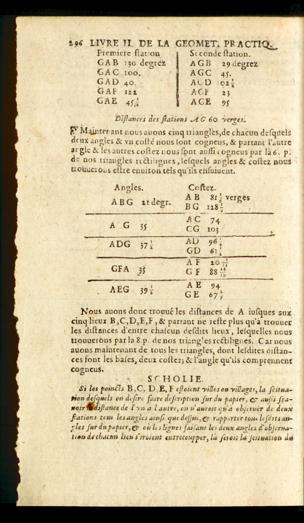 296 LIVRE II. DE LA GEOMET. PRACTIQ.
Premiere station Seconde station.
GAB 130 degrez AGB 29 degrez
GAC 100. AGC 45.
GAD 40. AGD
GAF 122 AGF 23
GAE AGE 95
Distances des stations AG 60 verges.
Maintenant nous auons cinq triangles, de chacun desquels
deux angles & vn costé nous sont cogneus, & partant l'autre
angle & les autres costez nous sont aussi cogneus par la 6. p.
de nos triangles rectilignes, lesquels angles & costez nous
trouuerons estre enuiron tels qu'ils ensuiuent.
Angles. Costez.
ABG 21 degr. AB 81 verges
BG 128
A G 35 AC 74
CG 103
ADG 37 AD 96
GD 61
GFA 35 AF 20
GF 88
AEG 39 AE 94
GE 67
Nous auons donc trouué les distances de A iusques aux
cinq lieux B, C, D, E, F, & partant ne reste plus qu'à trouuer
les distances d'entre chacun desdits lieux, lesquelles nous
trouuerons par la 8.p. de nos triangles rectilignes. Car nous
auons maintenant de tous les triangles, dont lesdites distan-
ces sont les bases, deux costez, & l'angle qu'ils comprennent
cogneus.
SCHOLIE.
Si les poincts B, C, D, E, F estoient villes ou villages, la scitua-
tion desquels on desire faire description sur du papier, & aussi sca-
uoir distance de l'vn à l'autre, on n'auroit qu'à obseruer de deux
stations tous les angles ainsi que dessus, & rapporter tous lesdits an-
gles sur du papier, & où les lignes faisant les deux angles d'obserua-
tion de chacun lieu s'iroient entrecoupper, là seroit la scituation du